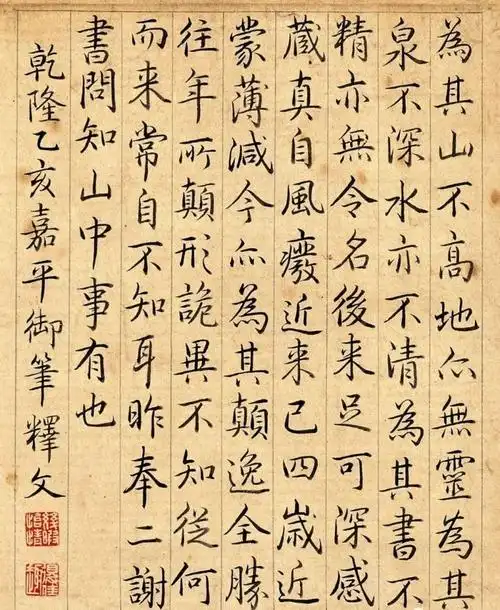 為其山不高地亦無靈為其
泉不深水亦不清為其書不
精亦無令名後來足可深感
蔵真自風癈近来已四歳近
蒙薄減今亦為其顛逸全勝
往年所顛形詭異不知從何
而来常自不知耳昨奉二謝
書問知山中事有也
乾隆乙亥嘉平御筆釋文